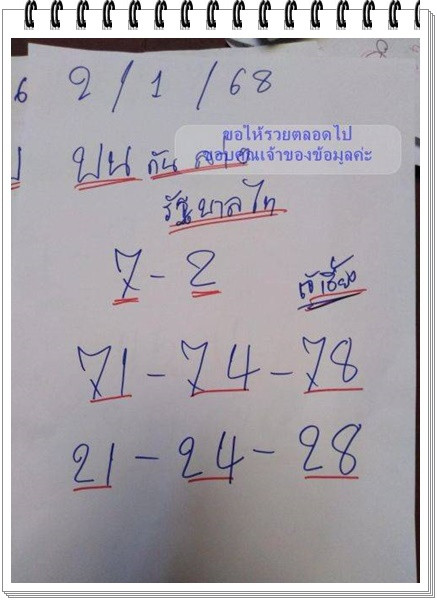 2/1/68
ขอให้รวยตลอดไป
ขอบคุณเจ้าของข้อมูลค่ะ
บน กัน
รัฐบาลไท
7-2
71-74-78
21-24-28